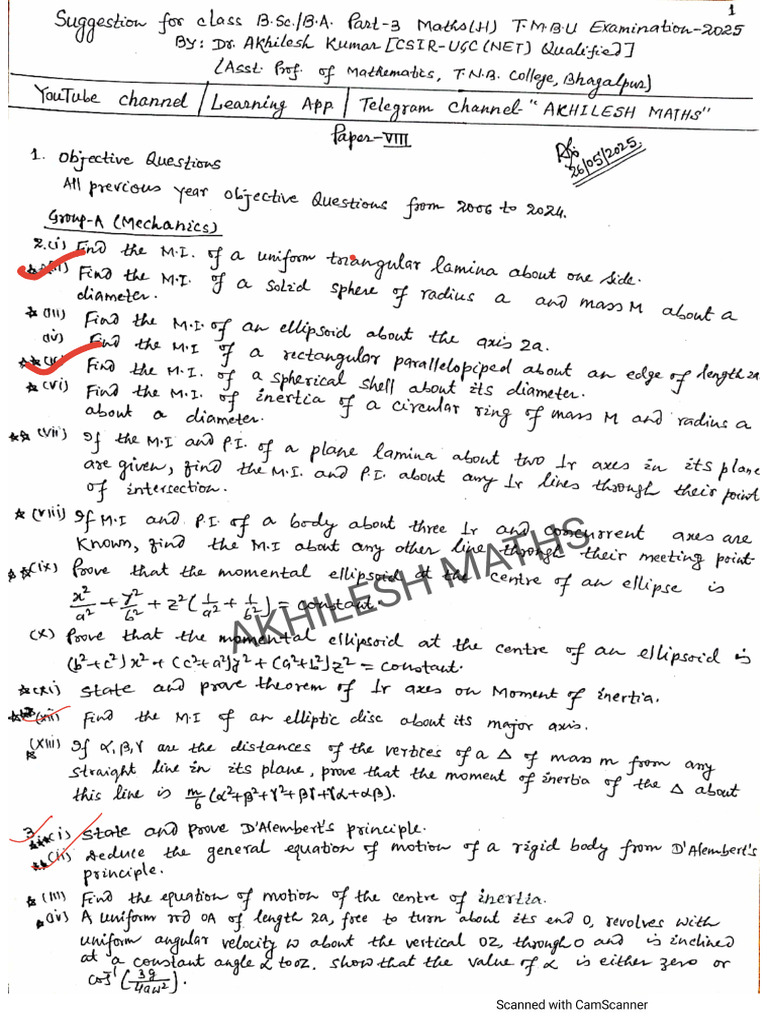 1
Suggestion for class B.Sc./B.A. Part-3 Maths(H) T.M.B.U Examination-2025
By: Dr. Akhilesh Kumar [CSIR-UGC(NET) Qualified]
(Asst. Prof. of Mathematics, T.N.B. College, Bhagalpur)
YouTube channel / Learning App / Telegram channel- "AKHILESH MATHS"
Paper-VIII
26/05/2025
1. Objective Questions
All previous year objective Questions from 2006 to 2024.
Group-A (Mechanics)
2.(i) Find the M.I. of a uniform triangular lamina about one side.
(ii) Find the M.I. of a solid sphere of radius a and mass M about a
diameter.
(iii) Find the M.I. of an ellipsoid about the axis 2a.
(iv) Find the M.I of a rectangular parallelopiped about an edge of length 2a
(v) Find the M.I. of a spherical shell about its diameter.
(vi) Find the M.I. of inertia of a circular ring of mass M and radius a
about a diameter.
(vii) If the M.I and P.I. of a plane lamina about two ⊥r axes in its plane
are given, find the M.I. and P.I. about any ⊥r lines through their point
of intersection.
(viii) If M.I and P.I. of a body about three ⊥r and concurrent axes are
known, find the M.I about any other line through their meeting point
(ix) Prove that the momental ellipsoid at the centre of an ellipse is
x²/a² + y²/b² + z²(1/a² + 1/b²) = constant.
(x) Prove that the momental ellipsoid at the centre of an ellipsoid is
(b²+c²)x² + (c²+a²)y² + (a²+b²)z² = constant.
(xi) State and prove theorem of ⊥r axes on Moment of inertia.
(xii) Find the M.I of an elliptic disc about its major axis.
(xiii) If α, β, γ are the distances of the vertices of a Δ of mass m from any
straight line in its plane, prove that the moment of inertia of the Δ about
this line is m/6 (α²+β²+γ²+βγ+γα+αβ).
3. (i) State and prove D'Alembert's principle.
(ii) Deduce the general equation of motion of a rigid body from D'Alembert's
principle.
(iii) Find the equation of motion of the centre of inertia.
(iv) A uniform rod OA of length 2a, free to turn about its end O, revolves with
uniform angular velocity ω about the vertical OZ, through O and is inclined
at a constant angle α to OZ. Show that the value of α is either zero or
cos⁻¹(3g/4aω²).
AKHILESH MATHS
Scanned with CamScanner